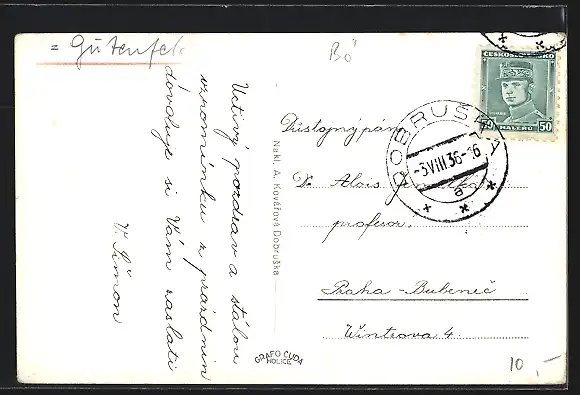 = Gutenfel
Bö
Uctivý pozdrav a stálou
vzpomínku z prázdnin
dovoluje si Vám zaslati
V. Šimon
Nakl. A. Kovářová Dobruška
GRAFO ČUDA
HOLICE
ČESKOSLOVENSKO
50 HALÉŘŮ 50
DOBRUŠKA
-3.VIII 36-16
a
Důstojný pán
Dr. Alois
profesor,
Praha - Bubeneč
Wintrova 4.
10,-